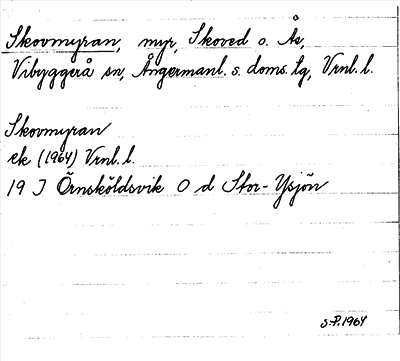 Skovmyran, myr, Skoved o. Ås,
Vibyggerå sn, Ångermanl. s. doms. lg, Vrnl. l.
Skovmyran
ek (1964) Vrnl. l.
19 J Örnsköldsvik O d Stor-Ysjön
S-P. 1964